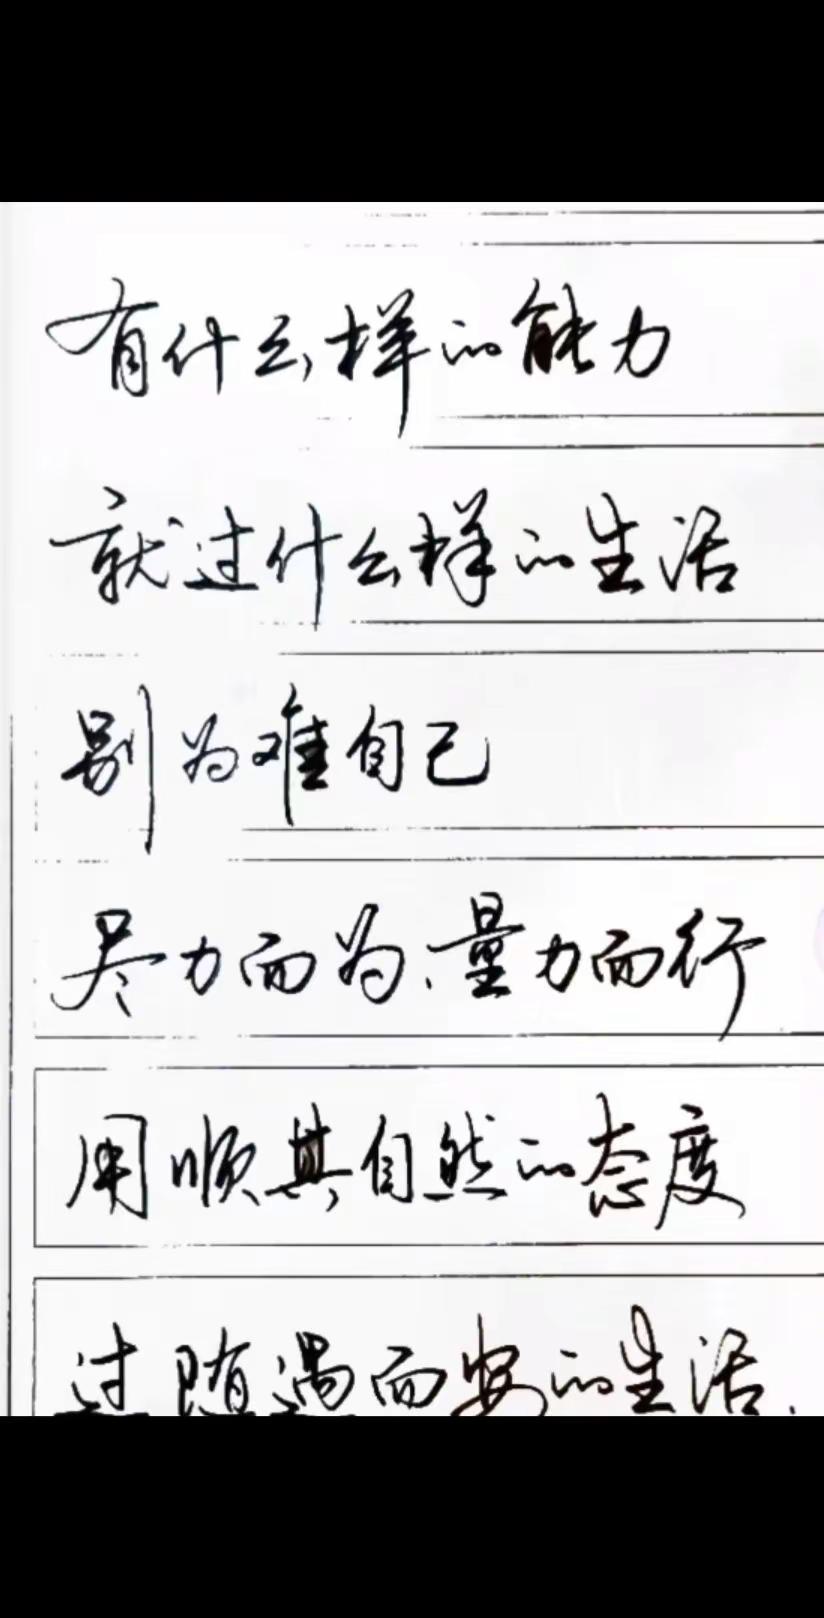 有什么样的能力
就过什么样的生活
别为难自己
尽力而为、量力而行
用顺其自然的态度
过随遇而安的生活.